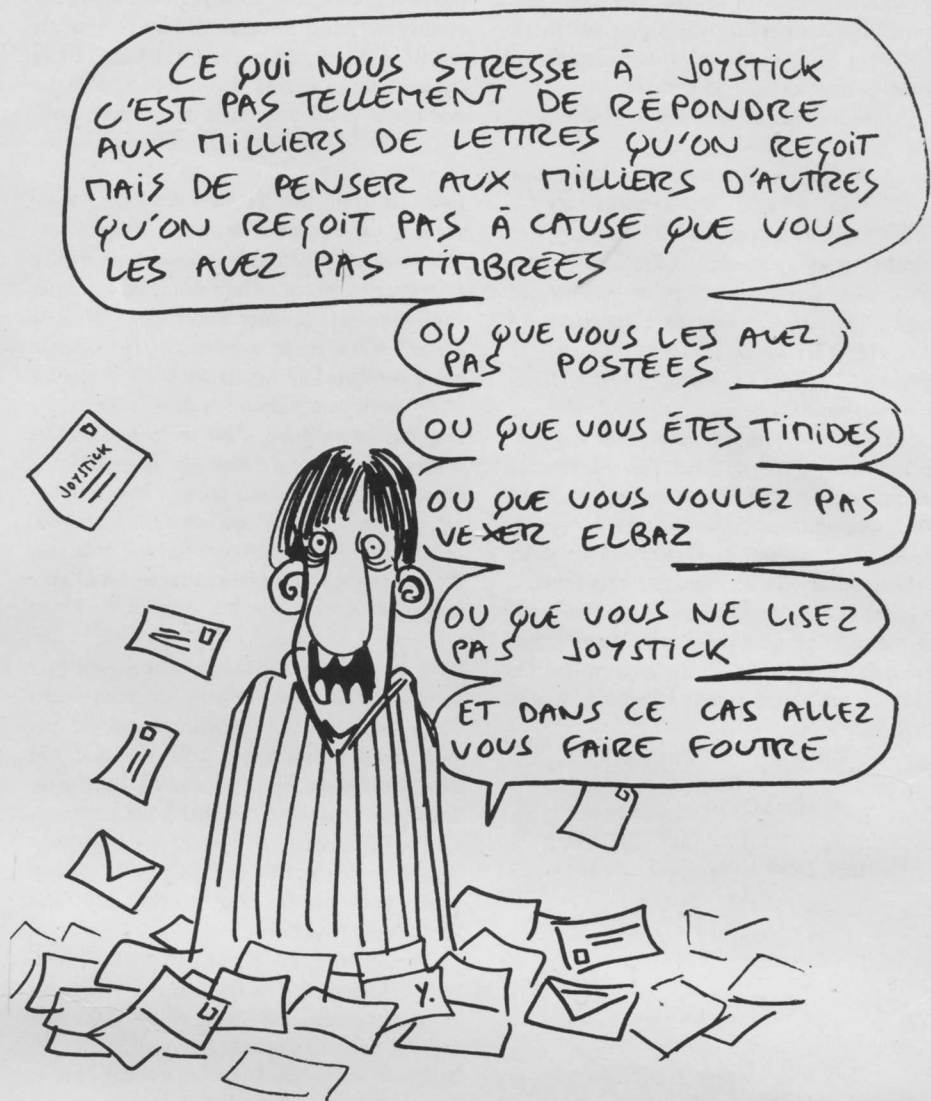 CE QUI NOUS STRESSE À JOYSTICK
C'EST PAS TELLEMENT DE RÉPONDRE
AUX MILLIERS DE LETTRES QU'ON REÇOIT
MAIS DE PENSER AUX MILLIERS D'AUTRES
QU'ON REÇOIT PAS À CAUSE QUE VOUS
LES AVEZ PAS TIMBRÉES
OU QUE VOUS LES AVEZ
PAS POSTÉES
OU QUE VOUS ÊTES TIMIDES
OU QUE VOUS VOULEZ PAS
VEXER ELBAZ
OU QUE VOUS NE LISEZ
PAS JOYSTICK
ET DANS CE CAS ALLEZ
VOUS FAIRE FOUTRE
JOYSTICK
Y.